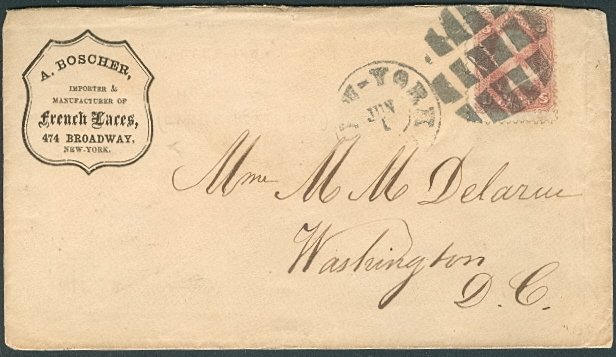 A. BOSCHER,
IMPORTER &
MANUFACTURER OF
French Laces,
474 BROADWAY,
NEW-YORK.
NEW-YORK
JUN
1
Mme M M Delarue
Washington
D.C.